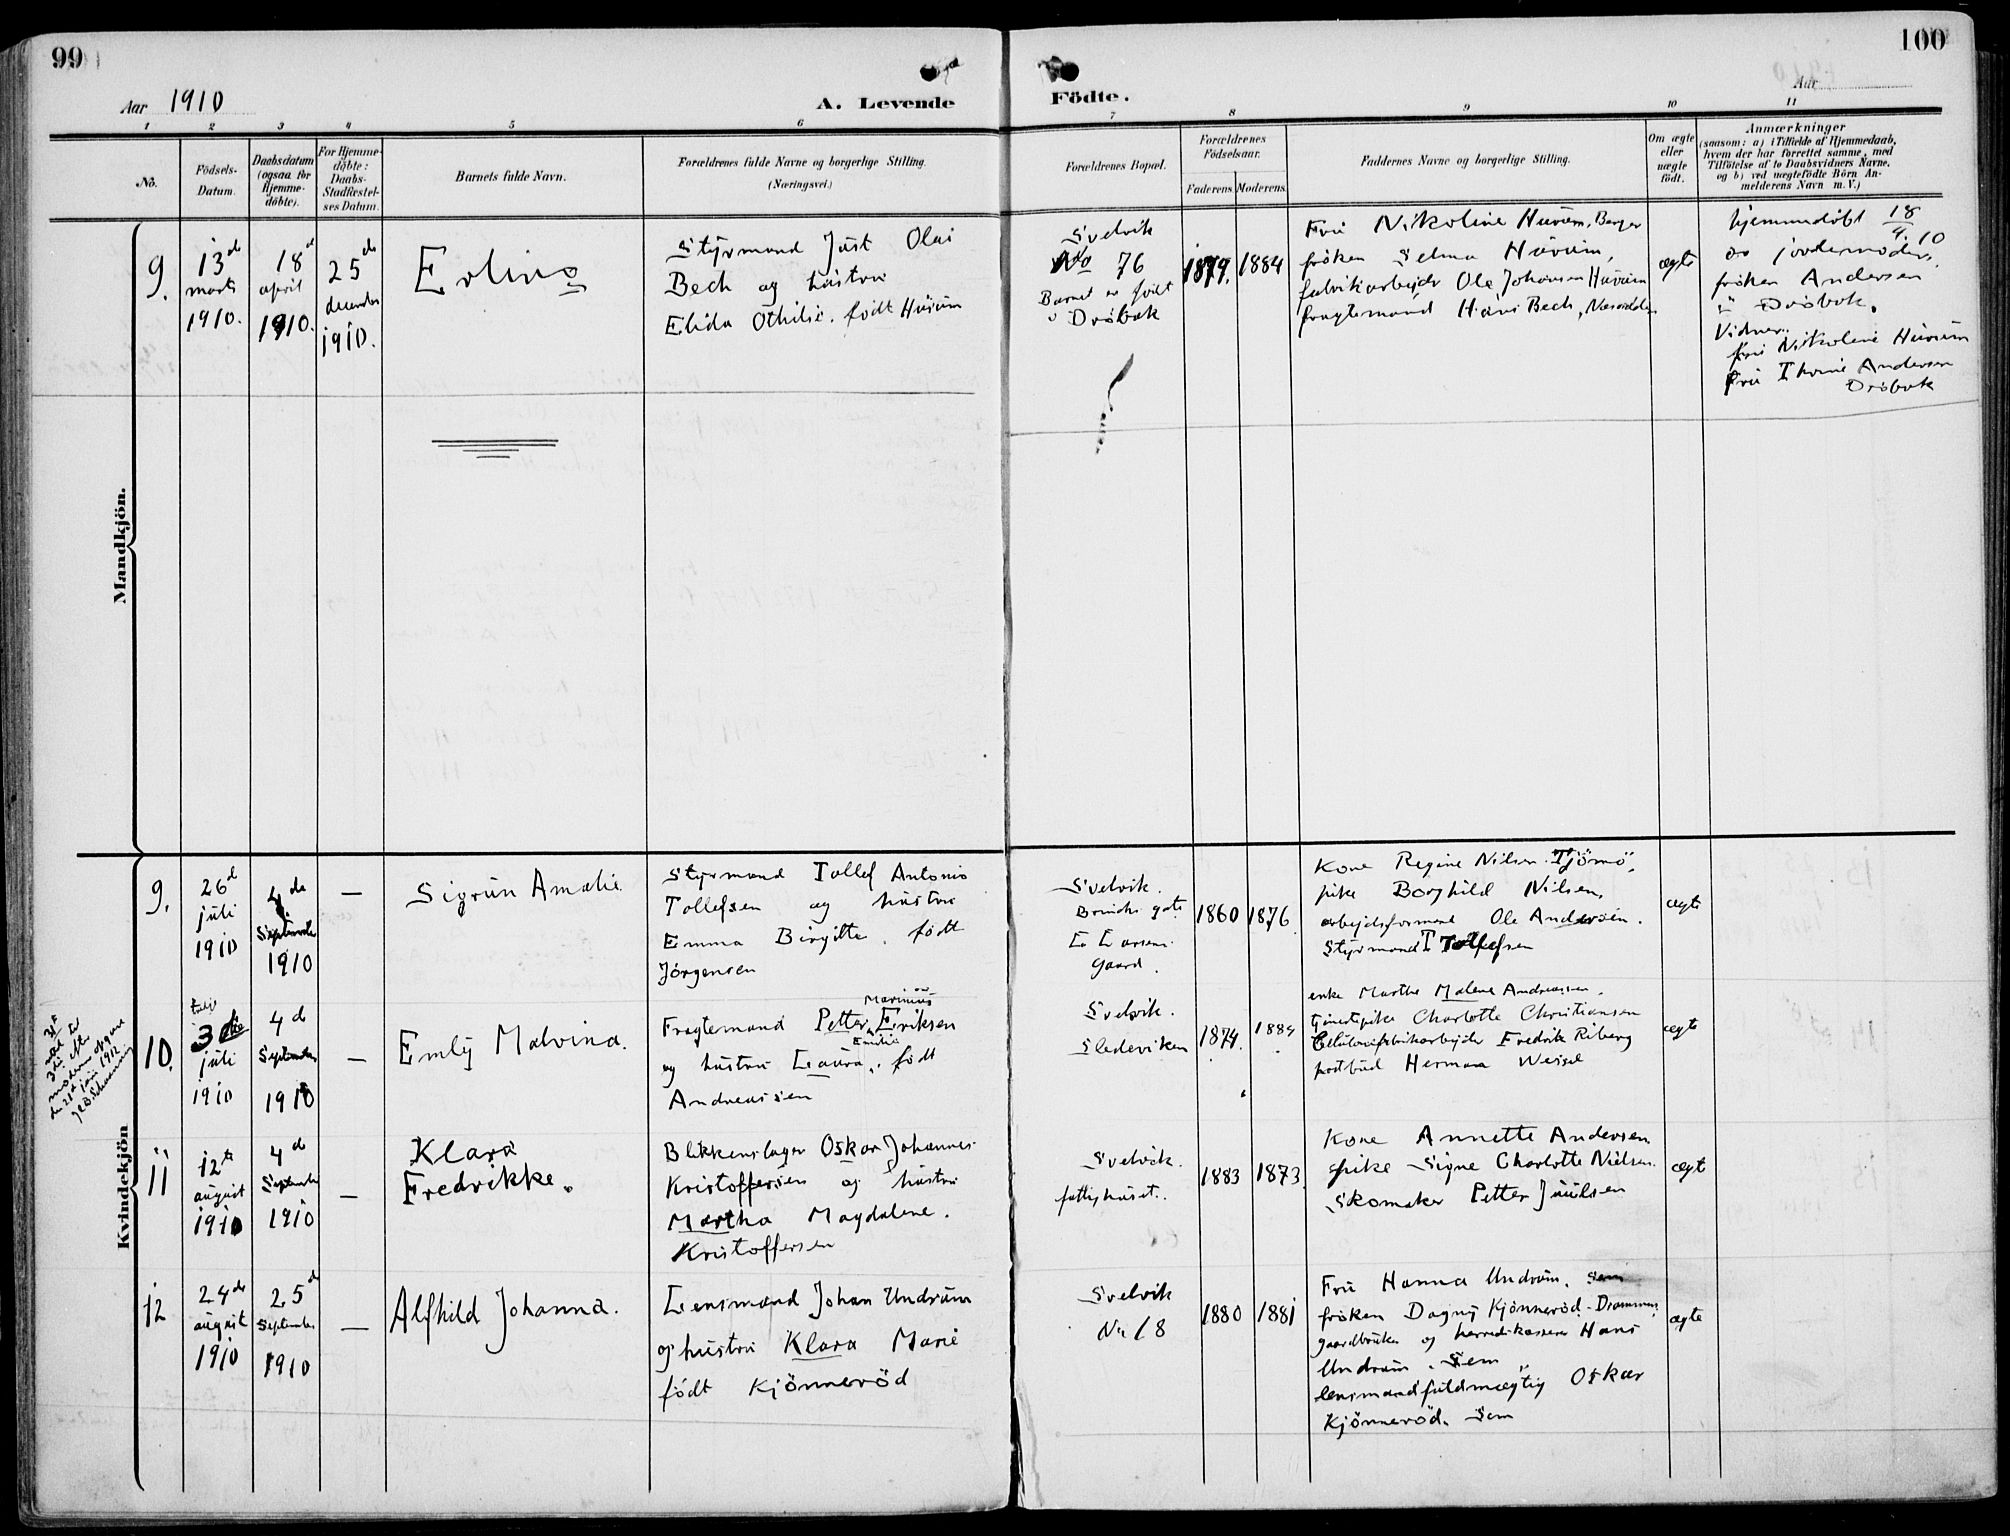 99
100
Aar 1910
A. Levende
Födte.
Aar
1 2 3 4 5 6 7 8 9 10 11
No.
Födsels-
Datum.
Daabsdatum
(ogsaa for
Hjemme-
döbte).
For Hjemme-
döbte:
Daabs-
Stadfæstel-
ses Datum.
Barnets fulde Navn.
Forældrenes fulde Navne og borgerlige Stilling.
(Næringsvei.)
Forældrenes Bopæl.
Forældrenes
Födselsaar.
Faderens. Moderens.
Faddernes Navne og borgerlige Stilling.
Om ægte
eller
uægte
födt.
Anmærkninger
(saasom: a) i Tilfælde af Hjemmedaab,
hvem der har forrettet samme, med
Tilföielse af to Daabsvidners Navne,
og b) ved uægtefödte Börn An-
melderens Navn m. V.)
Mandkjön.
9.
13de
marts
1910.
18de
april
1910.
25de
december
1910.
Erling
Styrmand Just Olai
Bech og hustru
Elida Othilie. födt Hurum
Svelvik
No 76
Barnet er födt
i Dröbak
1879. 1884
Fru Nikoline Hurum, Berger
fröken Selma Hurum,
fabrikarbeider Ole Johansen Hurum
fragtemand Hans Bech, Næsodden
ægte
hjemmedöbt 18/4.10
av jordemoder,
fröken Andersen
Dröbak.
Vidner:
fru Nikoline Hurum
fru Thrine Andersen
Dröbak
Kvindekjön
9.
26de
juli
1910
4de
September
1910
—
Sigrun Amalie
Styrmand Tollef Antonio
Tollefsen og hustru
Emma Birgitte. födt
Jörgensen
Svelvik.
Brinchs gate
L Larsens
Gaard.
1860 1876.
Kone Regine Nilsen. Tjömö,
pike Borghild Nilsen,
arbeidsformand Ole Andersen.
Styrmand T Tollefsen
ægte
10.
juli
1910
4de
September
1910
—
Emly Malvina.
Marinius
Fragtemand Petter Eriksen
Emilie
og hustru Laura. födt
Andreassen
Svelvik.
Sledeviken
1874. 1884.
enke Marthe Malene Andreassen,
tjenestepike Charlotte Christiansen
Cellulosefabrikarbeider Fredrik Riberg
postbud Herman Weisel
ægte
11
12te
august
1910
4de
September
1910
—
Klara
Fredrikke.
Blikkenslager Oskar Johannes
Kristoffersen og hustru
Martha Magdalene.
Kristoffersen
Svelvik.
fattighuset.
1883 1873.
Kone Annette Andersen
pike Signe Charlotte Nielsen.
Skomaker Petter Juulsen
ægte
12
24de
august
1910
25de
September
1910
—
Alfhild Johanna.
Lensmand Johan Undrum
og hustru Klara Marie
födt Kjönneröd
Svelvik
No 18
1880 1881
Fru Hanna Undrum. Sem
fröken Dagny Kjönneröd - Drammen,
gaardbruker og herredskasserer Hans
Undrum. Sem
lensmandsfuldmægtig Oskar
Kjönneröd. Sem
ægte